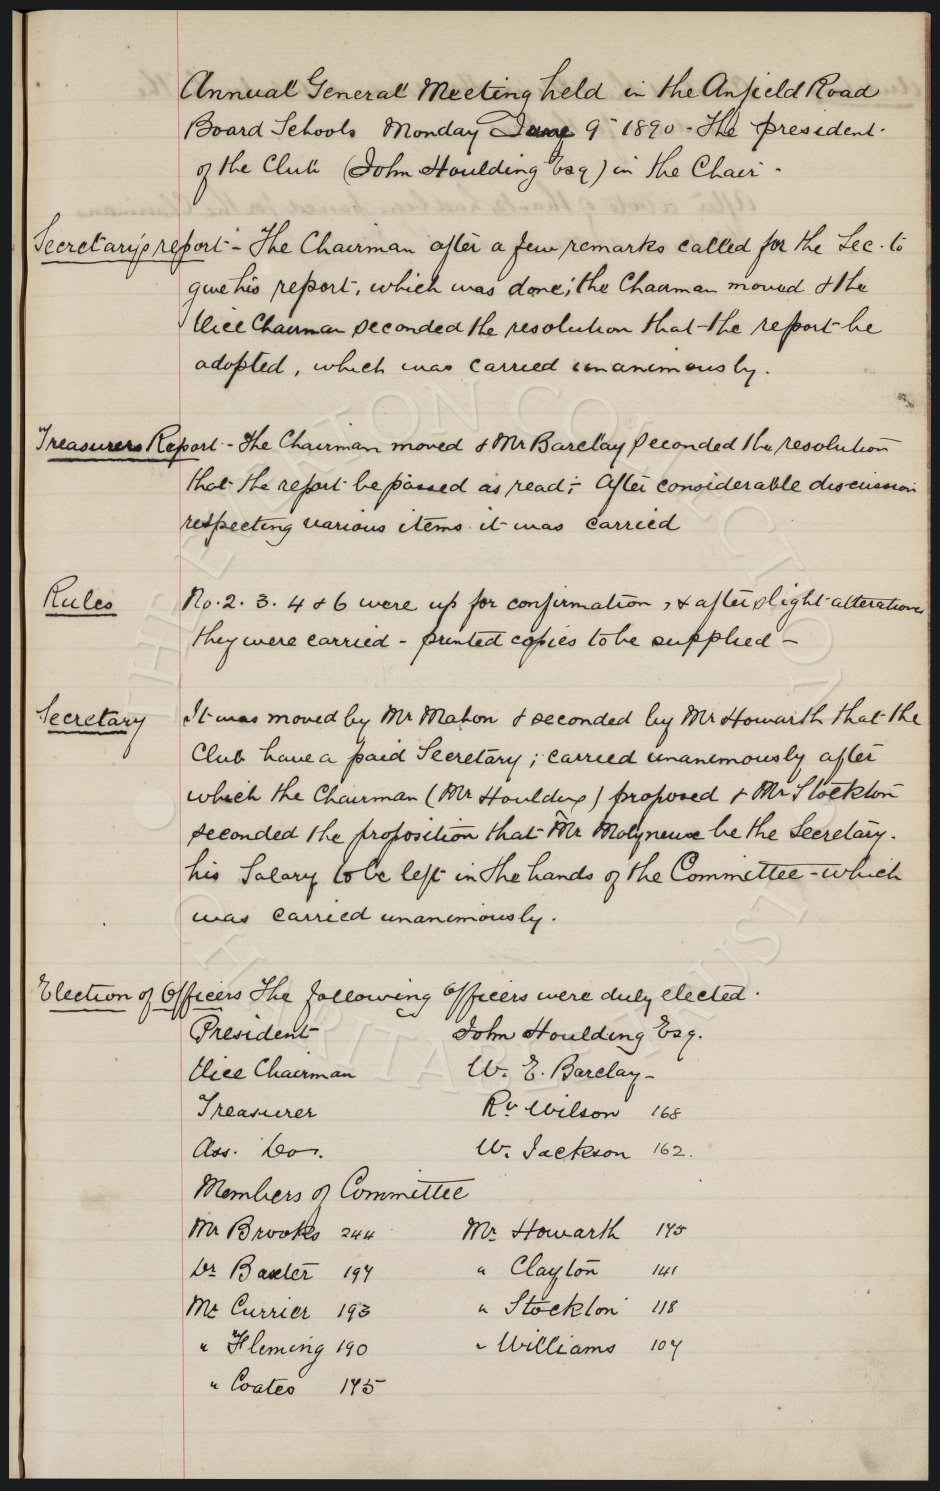 Annual General Meeting held in the Anfield Road
Board Schools Monday June 9th 1890 - The president
of the Club (John Houlding Esq) in the Chair -
Secretary's report - The Chairman after a few remarks called for the Sec. to
give his report, which was done; the Chairman moved & the
Vice Chairman seconded the resolution that the report be
adopted, which was carried unanimously.
Treasurers Report - The Chairman moved & Mr Barclay seconded the resolution
that the report be passed as read; - After considerable discussion
respecting various items it was carried
Rules No. 2. 3. 4 & 6 were up for confirmation, & after slight alterations
they were carried - printed copies to be supplied -
Secretary It was moved by Mr Mahon & seconded by Mr Howarth that the
Club have a paid Secretary; carried unanimously after
which the Chairman (Mr Houlding) proposed & Mr Stockton
seconded the proposition that Mr Molyneux be the Secretary.
his Salary to be left in the hands of the Committee - which
was carried unanimously.
Election of Officers The following Officers were duly elected.
President John Houlding Esq.
Vice Chairman W. E. Barclay -
Treasurer Rd Wilson 168
Ass. Do. W. Jackson 162.
Members of Committee
Mr Brooks 244 Mr Howarth 145
Dr Baxter 194 " Clayton 141
Mr Currier 193 " Stockton 118
" Fleming 190 " Williams 104
" Coates 145
THE EVERTON COLLECTION
CHARITABLE TRUST